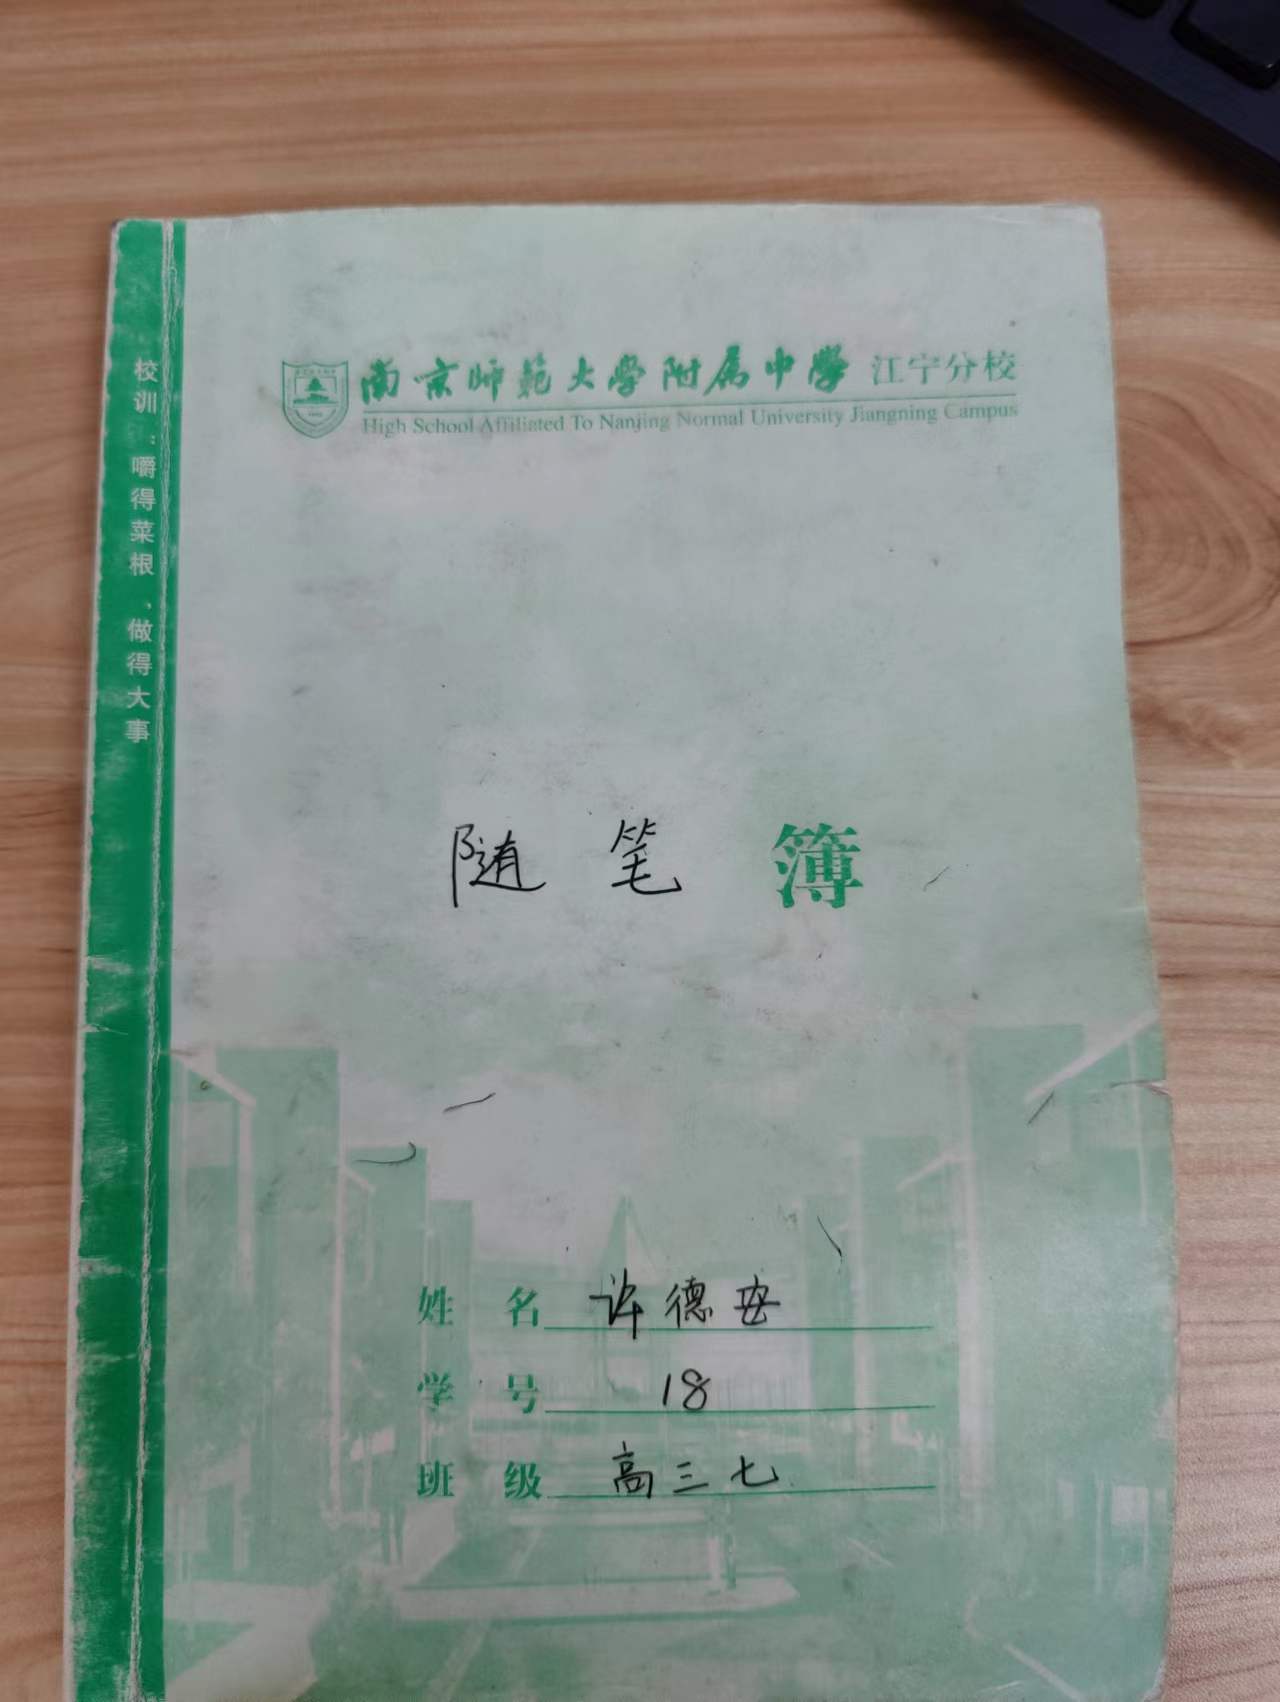 校训：嚼得菜根、做得大事
南京师范大学附属中学 江宁分校
High School Affiliated To Nanjing Normal University Jiangning Campus
随笔簿
姓名 许德安
学号 18
班级 高三七